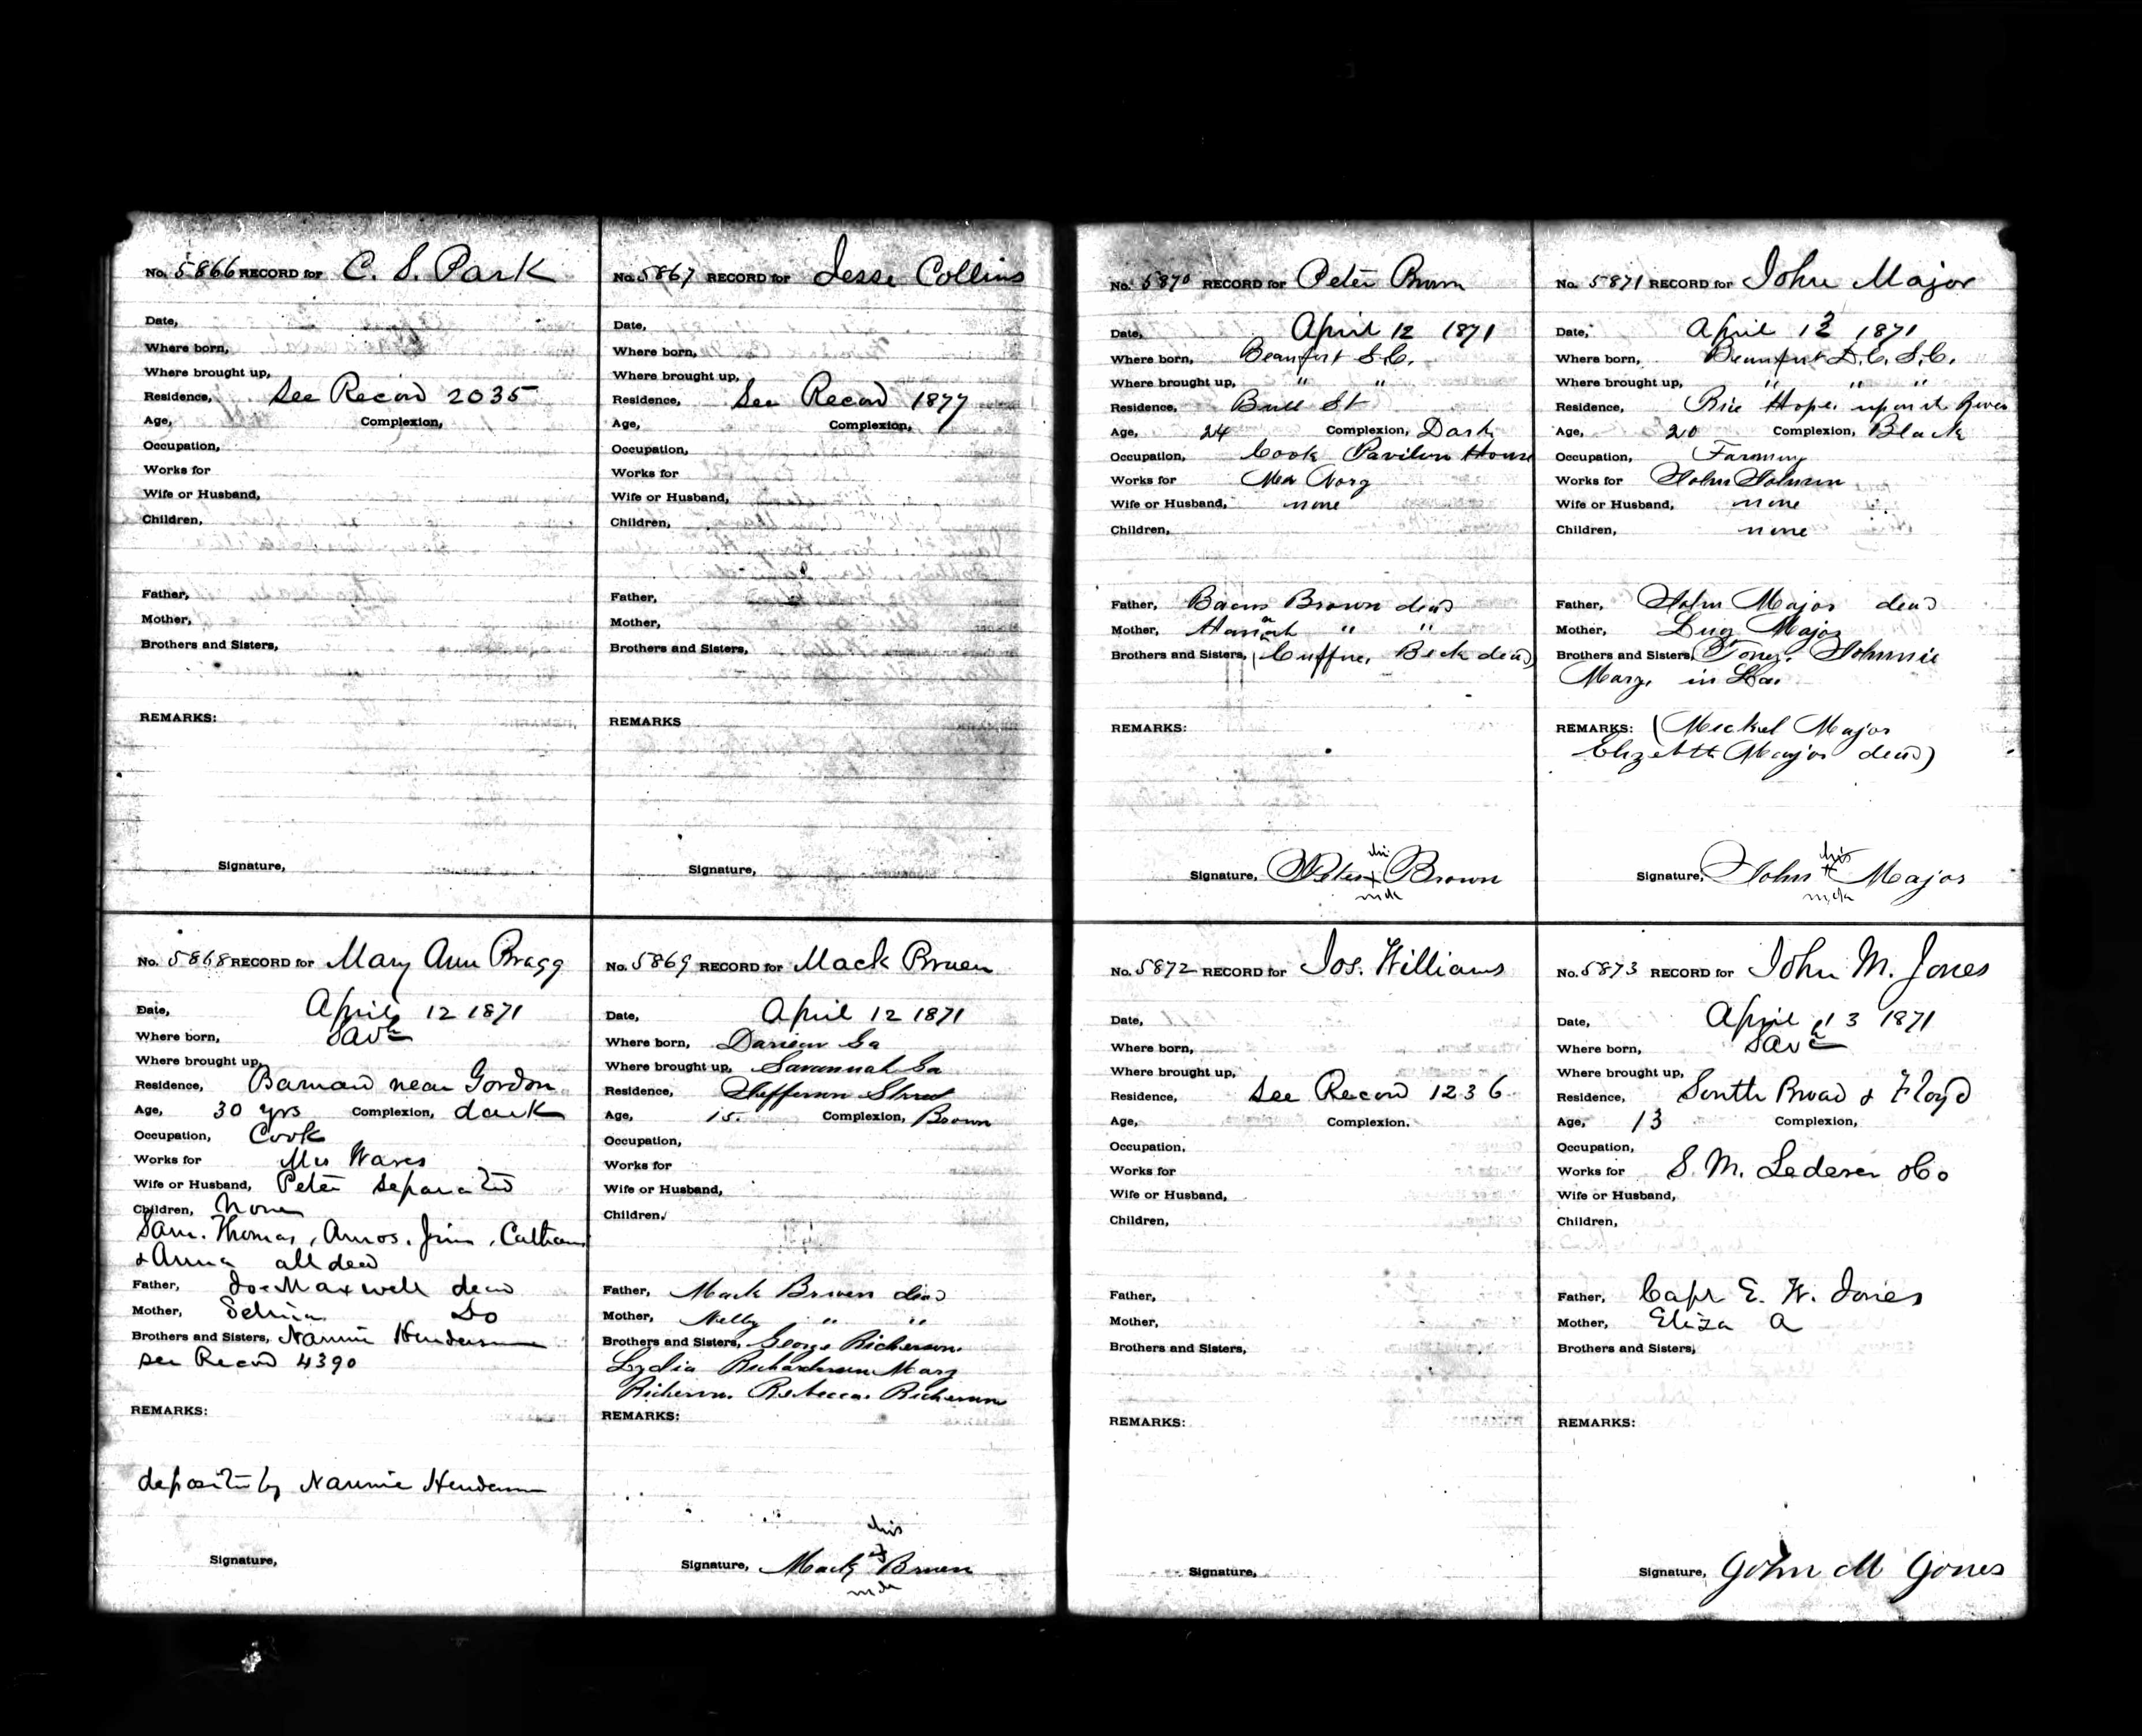 No. 5866 RECORD for C. S. Park
Date,
Where born,
Where brought up,
Residence, See Record 2035
Age, Complexion,
Occupation,
Works for
Wife or Husband,
Children,
Father,
Mother,
Brothers and Sisters,
REMARKS:
Signature,
No. 5867 RECORD for Jesse Collins
Date,
Where born,
Where brought up,
Residence, See Record 1877
Age, Complexion,
Occupation,
Works for
Wife or Husband,
Children,
Father,
Mother,
Brothers and Sisters,
REMARKS
Signature,
No. 5868 RECORD for Mary Ann Bragg
Date, April 12 1871
Where born, Savh
Where brought up,
Residence, Barnard near Gordon
Age, 30 yrs Complexion, dark
Occupation, Cook
Works for Mrs Wares
Wife or Husband, Peter separated
Children, None
Sam. Thomas, Amos. Jim, Calhoun
& Anna all dead
Father, Joe Maxwell dead
Mother, Selina Do
Brothers and Sisters, Nannie Henderson
see Record 4390
REMARKS:
deposite by Nannie Henderson
Signature,
No. 5869 RECORD for Mack Bruen
Date, April 12 1871
Where born, Darien Ga
Where brought up, Savannah Ga
Residence, Jefferson Street
Age, 15. Complexion, Brown
Occupation,
Works for
Wife or Husband,
Children,
Father, Mack Bruen dead
Mother, Nelly " "
Brothers and Sisters, George Richerson.
Lydia Richardson Mary
Richerson. Rebecca. Richerson
REMARKS:
his
Signature, Mack x Bruen
mark
No. 5870 RECORD for Peter Brown
Date, April 12 1871
Where born, Beaufort S.C.
Where brought up, " "
Residence, Bull St
Age, 24 Complexion, Dark
Occupation, Cook Pavilion House
Works for
Wife or Husband, none
Children,
Father, Brown dead
Mother, Hannah " "
Brothers and Sisters, (Cuffne, Beck dead)
REMARKS:
his
Signature, Peter x Brown
mark
No. 5871 RECORD for John Major
Date, April 12 1871
Where born, Beaufort D.C. S.C.
Where brought up, " " "
Residence, Rice Hope, upon it River
Age, 20 Complexion, Black
Occupation, Farming
Works for John
Wife or Husband, none
Children, none
Father, John Major dead
Mother, Major
Brothers and Sisters, Toney. Johnnie
Mary, in
REMARKS: (Meckel Major
Elizabeth Major dead)
his
Signature, John x Major
mark
No. 5872 RECORD for Jos. Williams
Date,
Where born,
Where brought up,
Residence, See Record 1236
Age, Complexion.
Occupation,
Works for
Wife or Husband,
Children,
Father,
Mother,
Brothers and Sisters,
REMARKS:
Signature,
No. 5873 RECORD for John M. Jones
Date, April 13 1871
Where born, Savh
Where brought up,
Residence, South Broad & Floyd
Age, 13 Complexion,
Occupation,
Works for S. M. Lederer & Co
Wife or Husband,
Children,
Father, Capt E. W. Jones
Mother, Eliza A
Brothers and Sisters,
REMARKS:
Signature, John M Jones